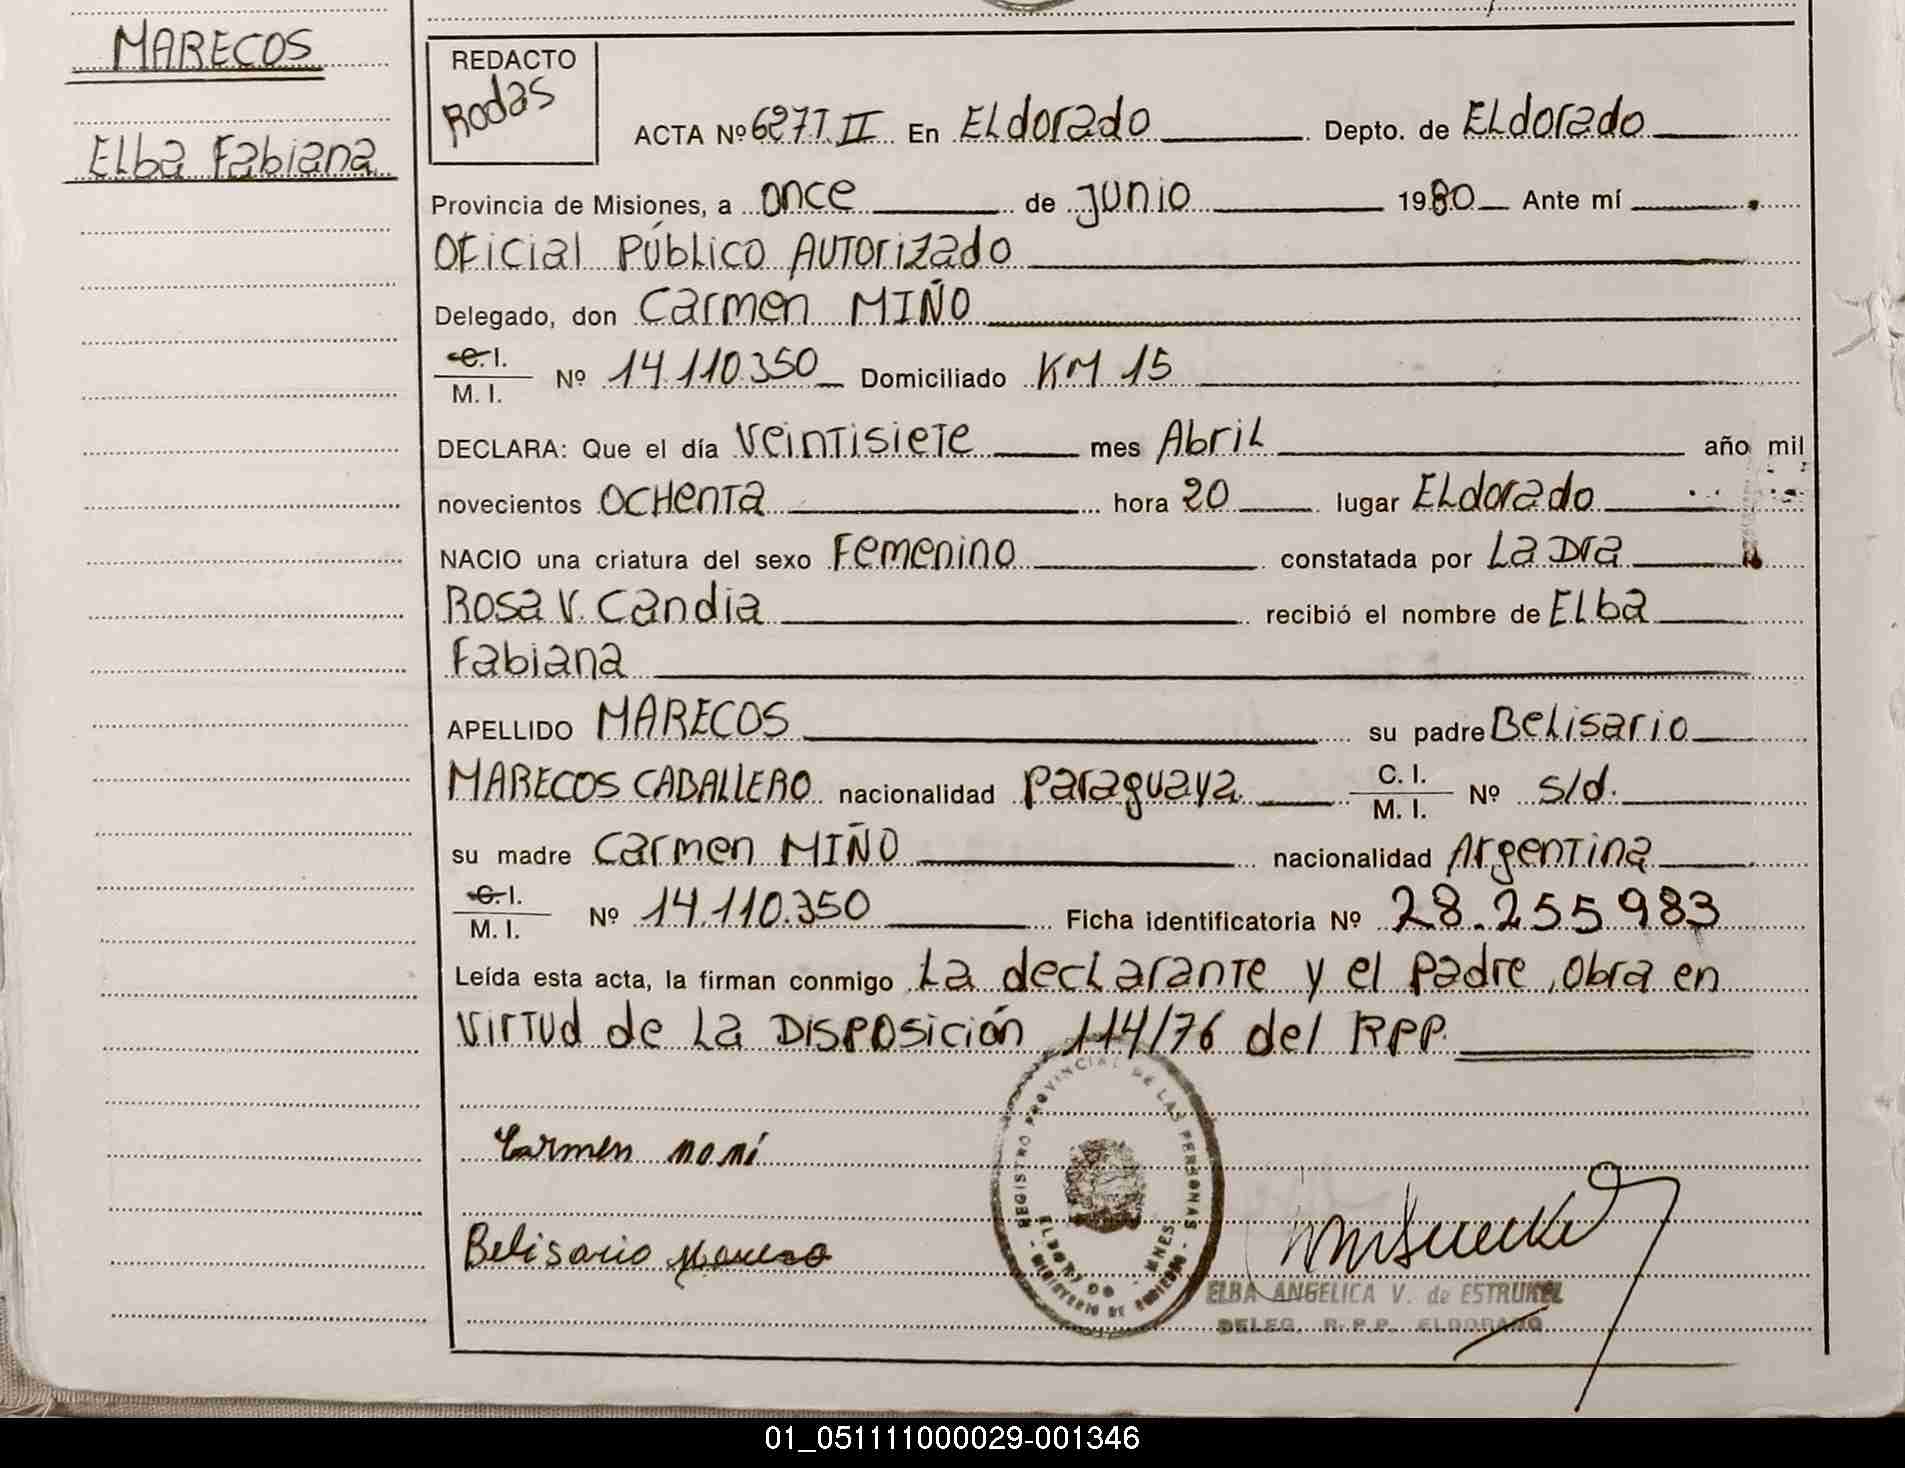 MARECOS
Elba Fabiana
REDACTO
Rodas
ACTA Nº 627 T II En ELdorado Depto. de ELdorado
Provincia de Misiones, a once de junio 1980 Ante mí
Oficial Público Autorizado
Delegado, don Carmen MIÑO
C. I.
M. I. Nº 14.110.350 Domiciliado KM 15
DECLARA: Que el día veintisiete mes Abril año mil
novecientos ochenta hora 20 lugar ELdorado
NACIO una criatura del sexo Femenino constatada por La Dra
Rosa V. Candia recibió el nombre de ELba
Fabiana
APELLIDO MARECOS su padre Belisario
MARECOS CABALLERO nacionalidad paraguaya C. I.
M. I. Nº s/d.
su madre Carmen MIÑO nacionalidad Argentina
C. I.
M. I. Nº 14.110.350 Ficha identificatoria Nº 28.255983
Leída esta acta, la firman conmigo La declarante y el padre, obra en
virtud de La Disposición 114/76 del RPP.
Carmen
Belisario
REGISTRO PROVINCIAL DE LAS PERSONAS
ELDORADO - MNES.
MINISTERIO DE GOBIERNO
ELBA ANGELICA V. de ESTRUKEL
DELEG. R.P.P. ELDORADO
01_051111000029-001346